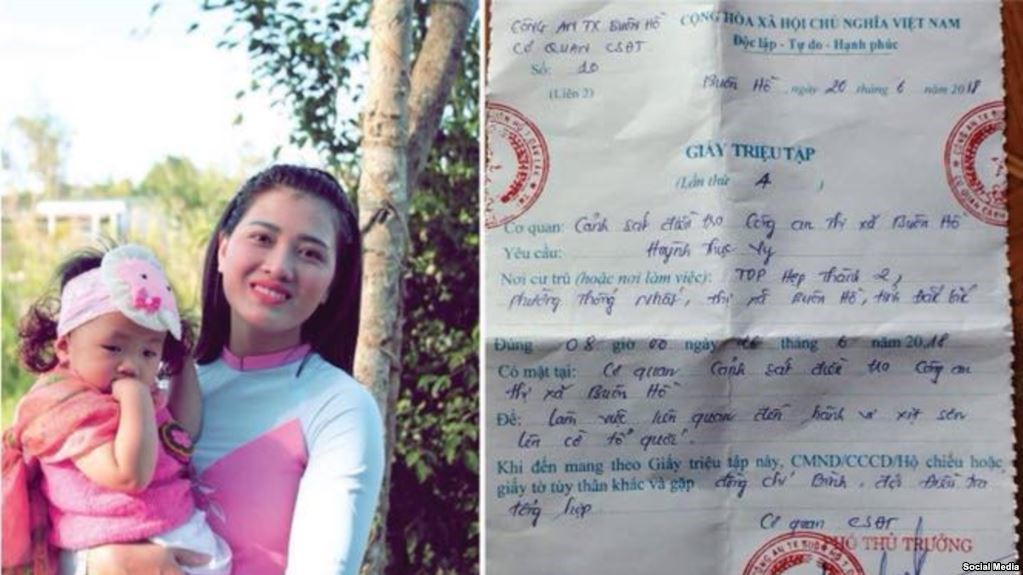 CÔNG AN TX BUÔN HỒ
CƠ QUAN CSĐT
Số: 10
(Liên 2)
CỘNG HÒA XÃ HỘI CHỦ NGHĨA VIỆT NAM
Độc lập - Tự do - Hạnh phúc
Buôn Hồ, ngày 20 tháng 6 năm 2018
GIẤY TRIỆU TẬP
(Lần thứ 1)
Cơ quan: Cảnh sát điều tra Công an thị xã Buôn Hồ
Yêu cầu: Huỳnh Thục Vy
Nơi cư trú (hoặc nơi làm việc): TDP Hợp Thành 2,
phường Thống Nhất, thị xã Buôn Hồ, tỉnh Đắk Lắk
Đúng 08 giờ 00 ngày tháng 6 năm 2018
Có mặt tại: Cơ quan Cảnh sát điều tra Công an
thị xã Buôn Hồ
Để: Làm việc liên quan đến hành vi xịt sơn
lên cờ tổ quốc.
Khi đến mang theo Giấy triệu tập này, CMND/CCCD/Hộ chiếu hoặc
giấy tờ tùy thân khác và gặp đồng chí Bình, đội Điều tra
tổng hợp
Cơ quan CSĐT
PHÓ THỦ TRƯỞNG
Social Media